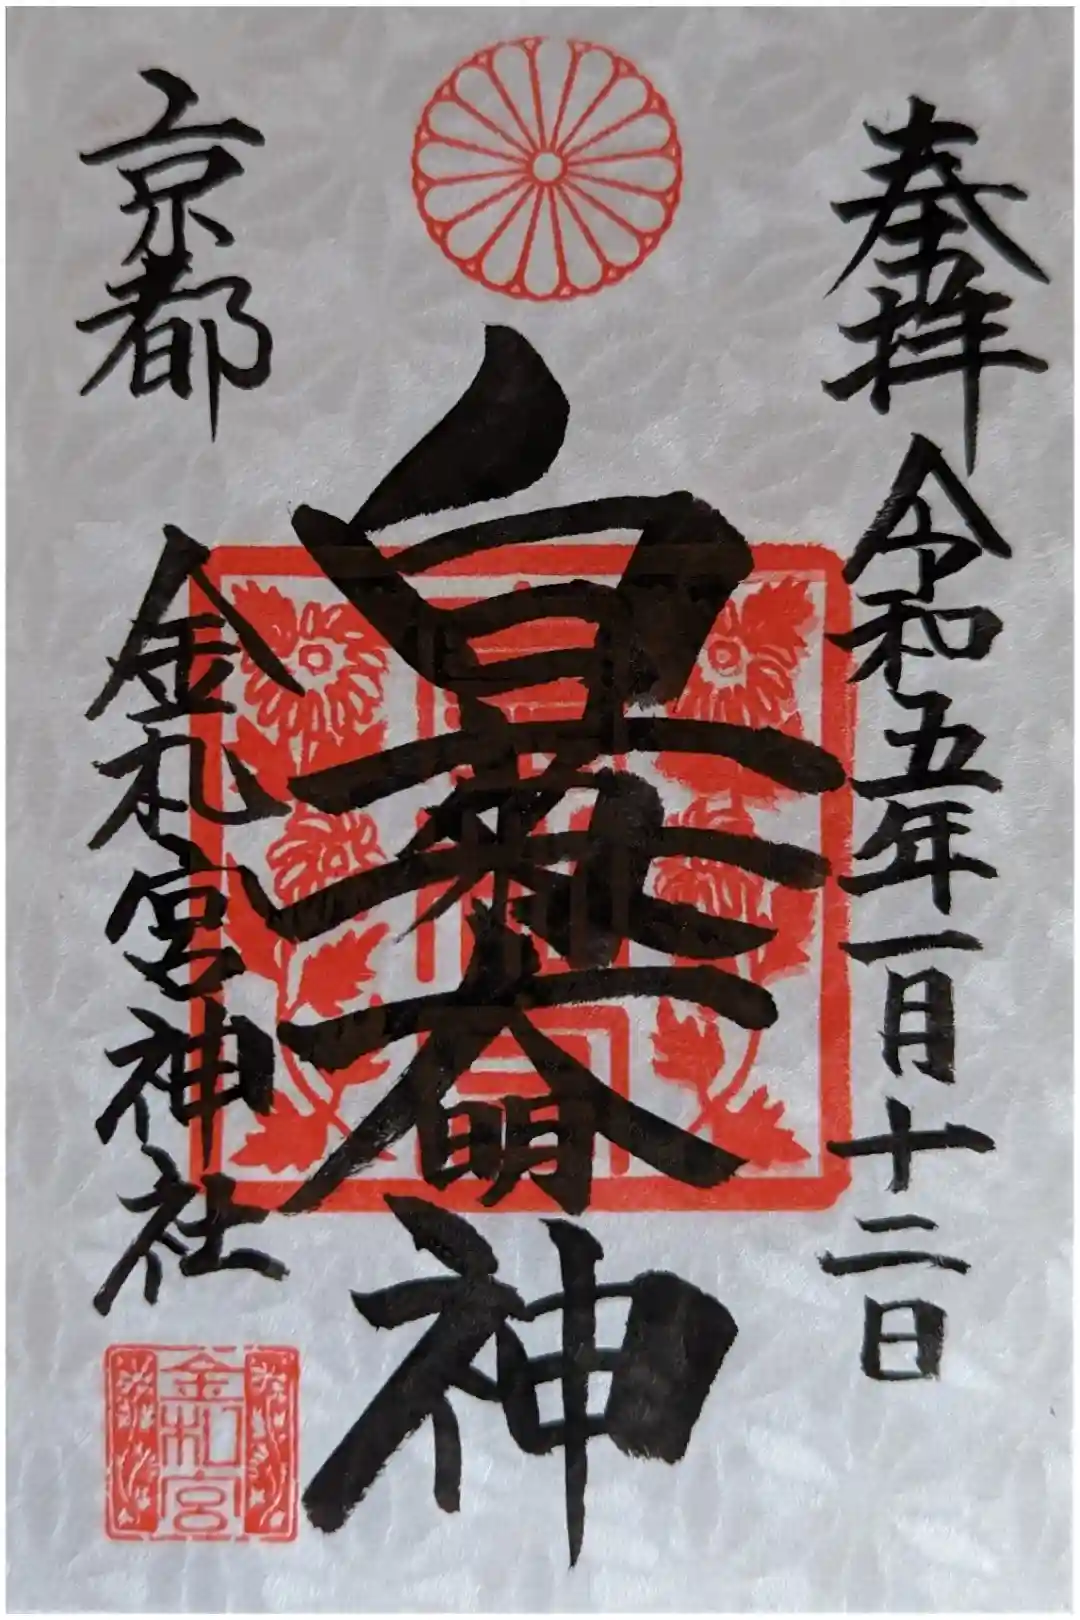 奉拝 令和五年一月十二日
白菊大明神
京都
金札宮神社
金札宮